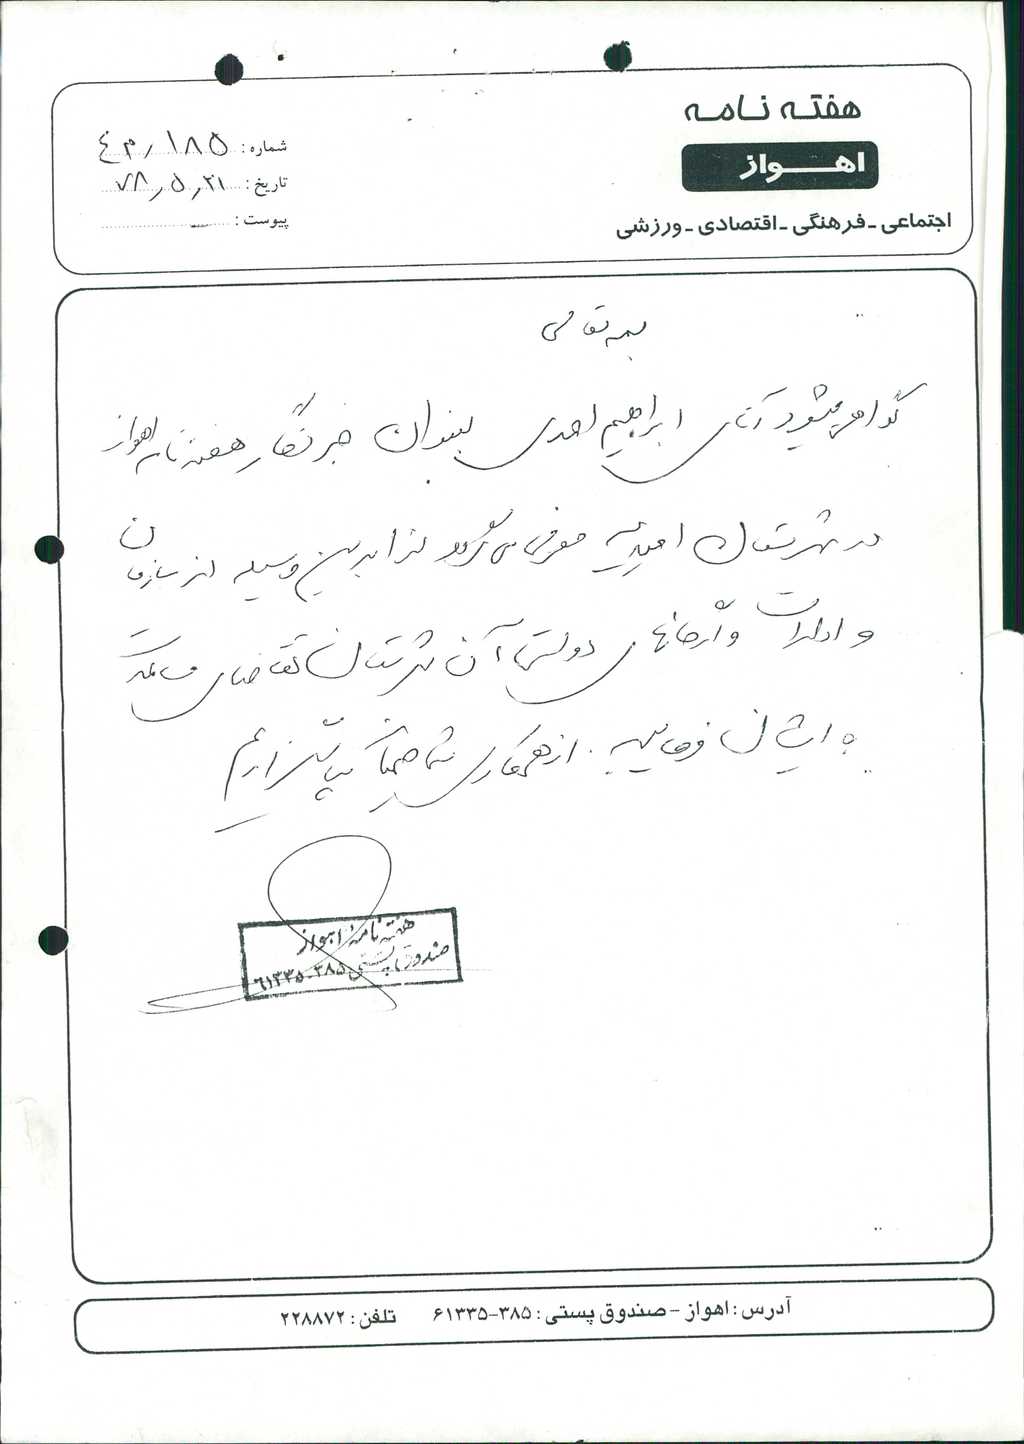 هفته نامه
اهـــواز
اجتماعی ـ فرهنگی ـ اقتصادی ـ ورزشی
شماره: ۱۸۵
تاریخ: ۷۸٫۵٫۲۱
پیوست:
بسمه تعالی
گواهی میشود آقای ابراهیم احمدی بعنوان خبرنگار هفته نامه اهواز
در شهرستان امیدیه معرفی می گردد لذا بدین وسیله از سازمان
و ادارات و ارگانهای دولتی آن شهرستان تقاضای
به ایشان فرمایید. از همکاری شما سپاسگزاریم
هفته نامه اهواز
صندوق پستی ۳۸۵-۶۱۳۳۵
آدرس: اهواز - صندوق پستی: ۳۸۵-۶۱۳۳۵ تلفن: ۲۲۸۸۷۲